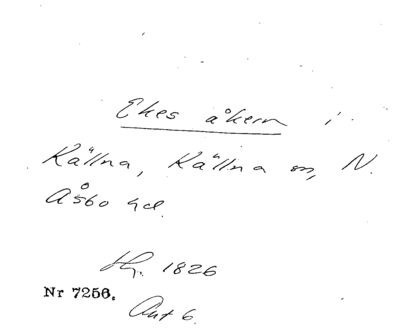 Ekes åkern i
Källna, Källna sn, N.
Åsbo hd.
Hy. 1826
Nr 7256.
Akt 6.